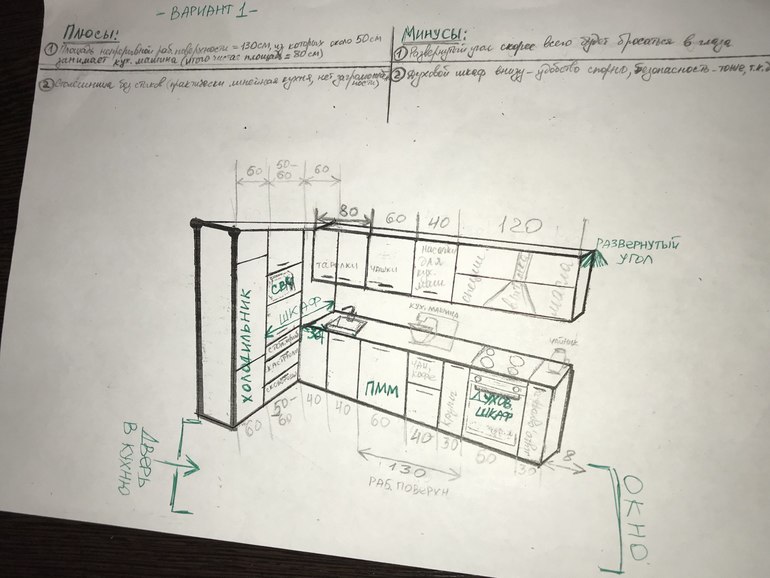 - ВАРИАНТ 1 -
Плюсы:
① Площадь непрерывной раб. поверхности = 130см, из которых около 50см
занимает кух. машина (итого чистая площадь = 80см)
② Столешница без стыков (практически линейная кухня, нет
Минусы:
① Развернутый угол скорее всего будет бросаться в глаза
② Духовой шкаф внизу - удобство спорно, безопасность - тоже, т.к. д
60
50-
60
60
80
60
40
120
РАЗВЕРНУТЫЙ
УГОЛ
ХОЛОДИЛЬНИК
СВЧ
ШКАФ
КАСТРЮЛИ
ТАРЕЛКИ
ЧАШКИ
НАСАДКИ
ДЛЯ
КУХ.
МАШ
специи
вытяжка
масла
КУХ. МАШИНА
ЧАЙНИК
ПММ
ЧАЙ,
КОФЕ
ДУХОВ.
ШКАФ
60
50-
60
40
40
60
40
30
60
30
8
130
РАБ. ПОВЕРХН
ДВЕРЬ
В КУХНЮ
ОКНО